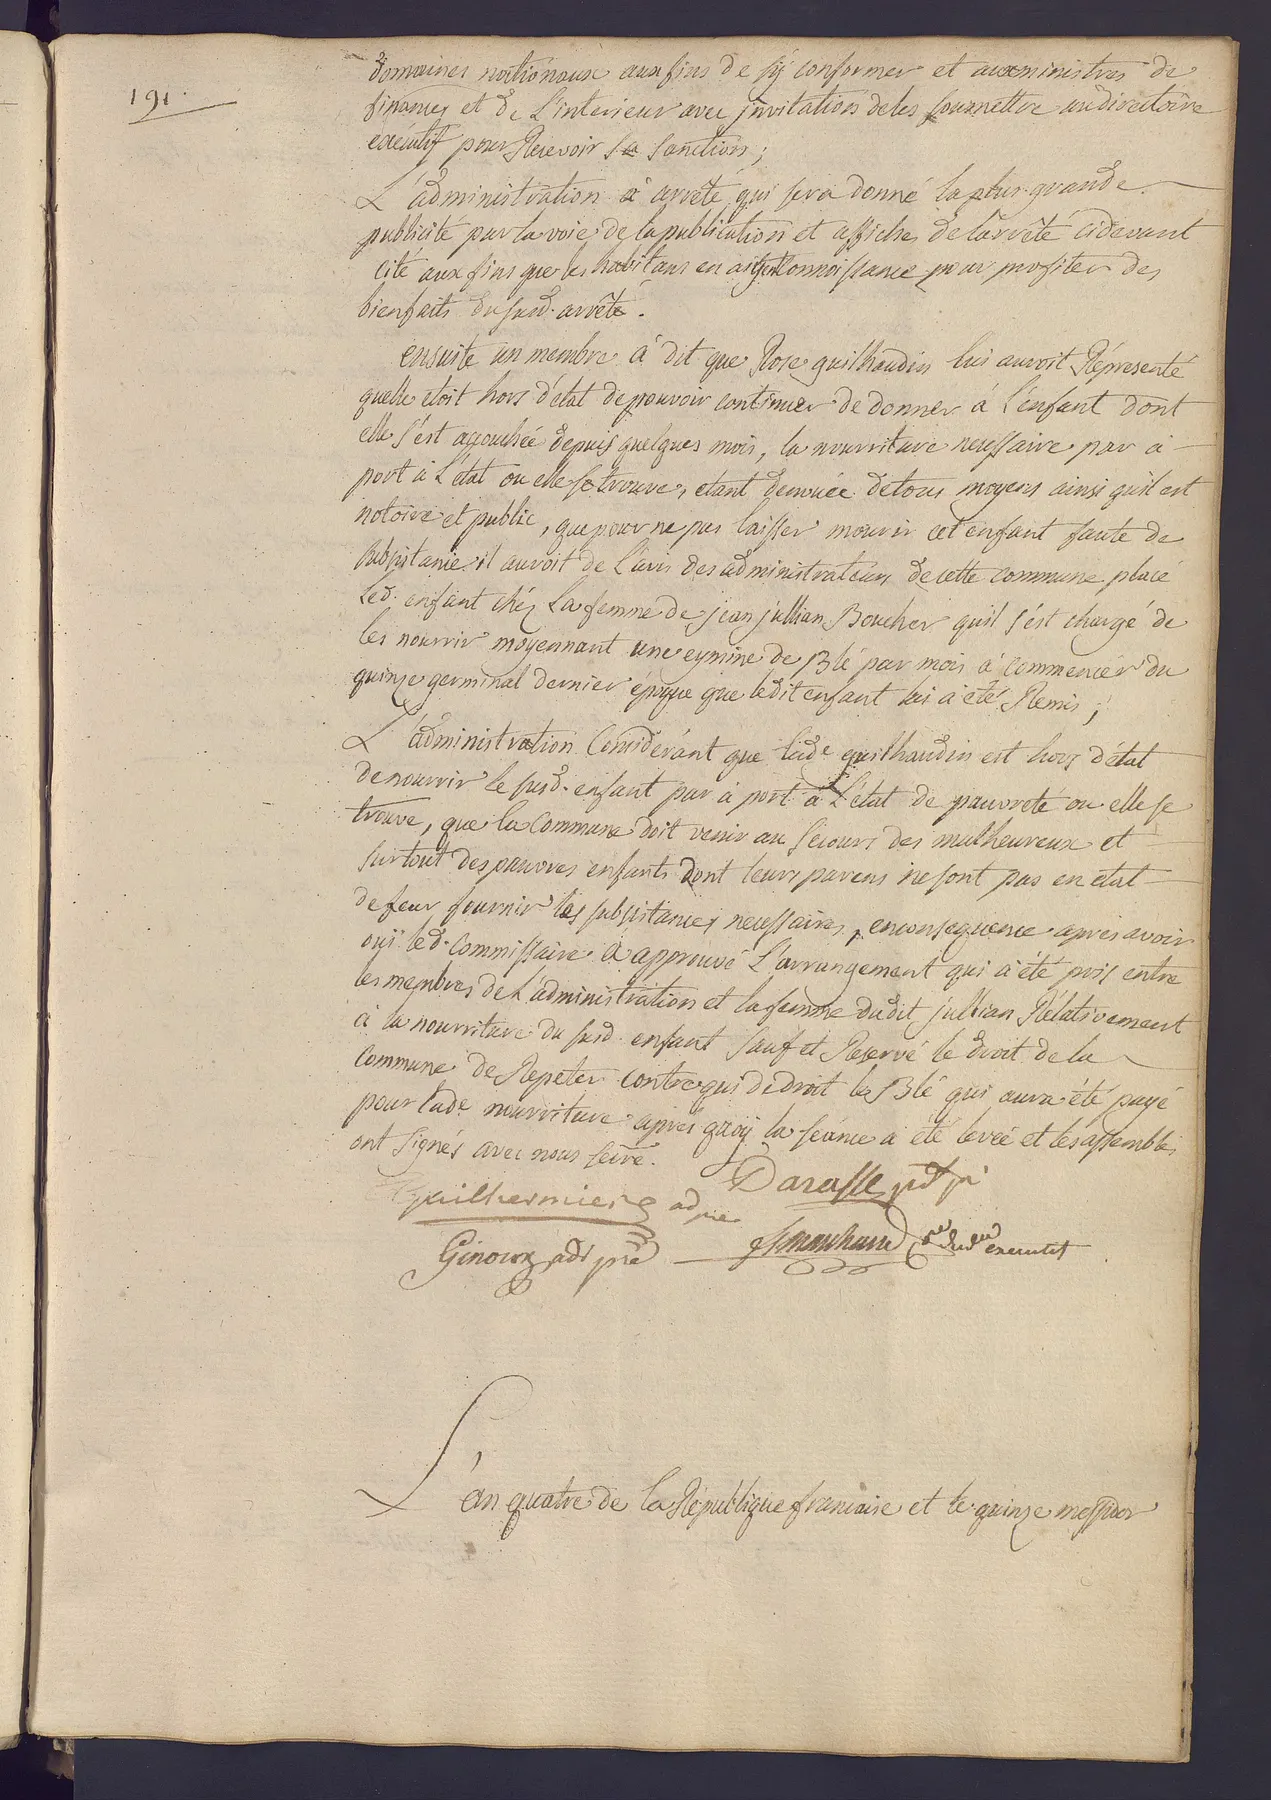 191.
domaines nationaux aux fins de s'ÿ conformer et aux ministres de
finances et de L'interieur avec jnvitation de les soumettre au directoire
executif pour Recevoir sa sanction;
L'administration à arrêté qui sera donné la plus grande
publicité par la voie de la publication et affiches de l'arrêté cidevant
cité aux fins que les habitans en aijent connoissance pour profiter des
bienfaits du susd. arrêté.
ensuite un membre à dit que Rose guilhaudin lui auroit Réprésenté
quelle etoit hors d'état de pouvoir continuer de donner à l'enfant dont
elle s'est acouchée depuis quelques mois, la nourriture necessaire par à
port à L'état ou elle se trouve, etant denuée de tous moyens ainsi qu'il est
notoire et public, que pour ne pas laisser mourir cet enfant faute de
subsistance il auroit de l'avis des administrateurs de cette commune placé
led. enfant chéz la femme de jean jullian Boucher qu'il s'est chargé de
les nourrir moyennant une eymine de Blé par mois à commencer du
quinze germinal dernier époque que ledit enfant lui à été Remis;
L'administration Considerant que lade guilhaudin est hors d'état
de nourrir le susd. enfant par à port à l'état de pauvreté ou elle se
trouve, que la Commune doit venir au secours des malheureux et
surtout des pauvres enfants dont leurs parens ne sont pas en etat
de leur fournir les subsistances necessaires, en consequence apres avoir
ouï led. Commissaire à approuvé L'arrangement qui à été pris entre
les membres de L'administration et la femme dudit jullian Rélativement
à la nourriture du susd. enfant sauf et Reservé le droit de la
Commune de Repeter contre qui de droit le Blé qui aura été payé
pour lade nourriture aprés quoÿ la séance à été levée et les assemblés
ont signés avec nous secre.
Darasse pdt pi
Guilhermier adpie
Ginoux adt pie fs marchand Cre du dre executif
L'an quatre de la République francaise et le quinze messidor